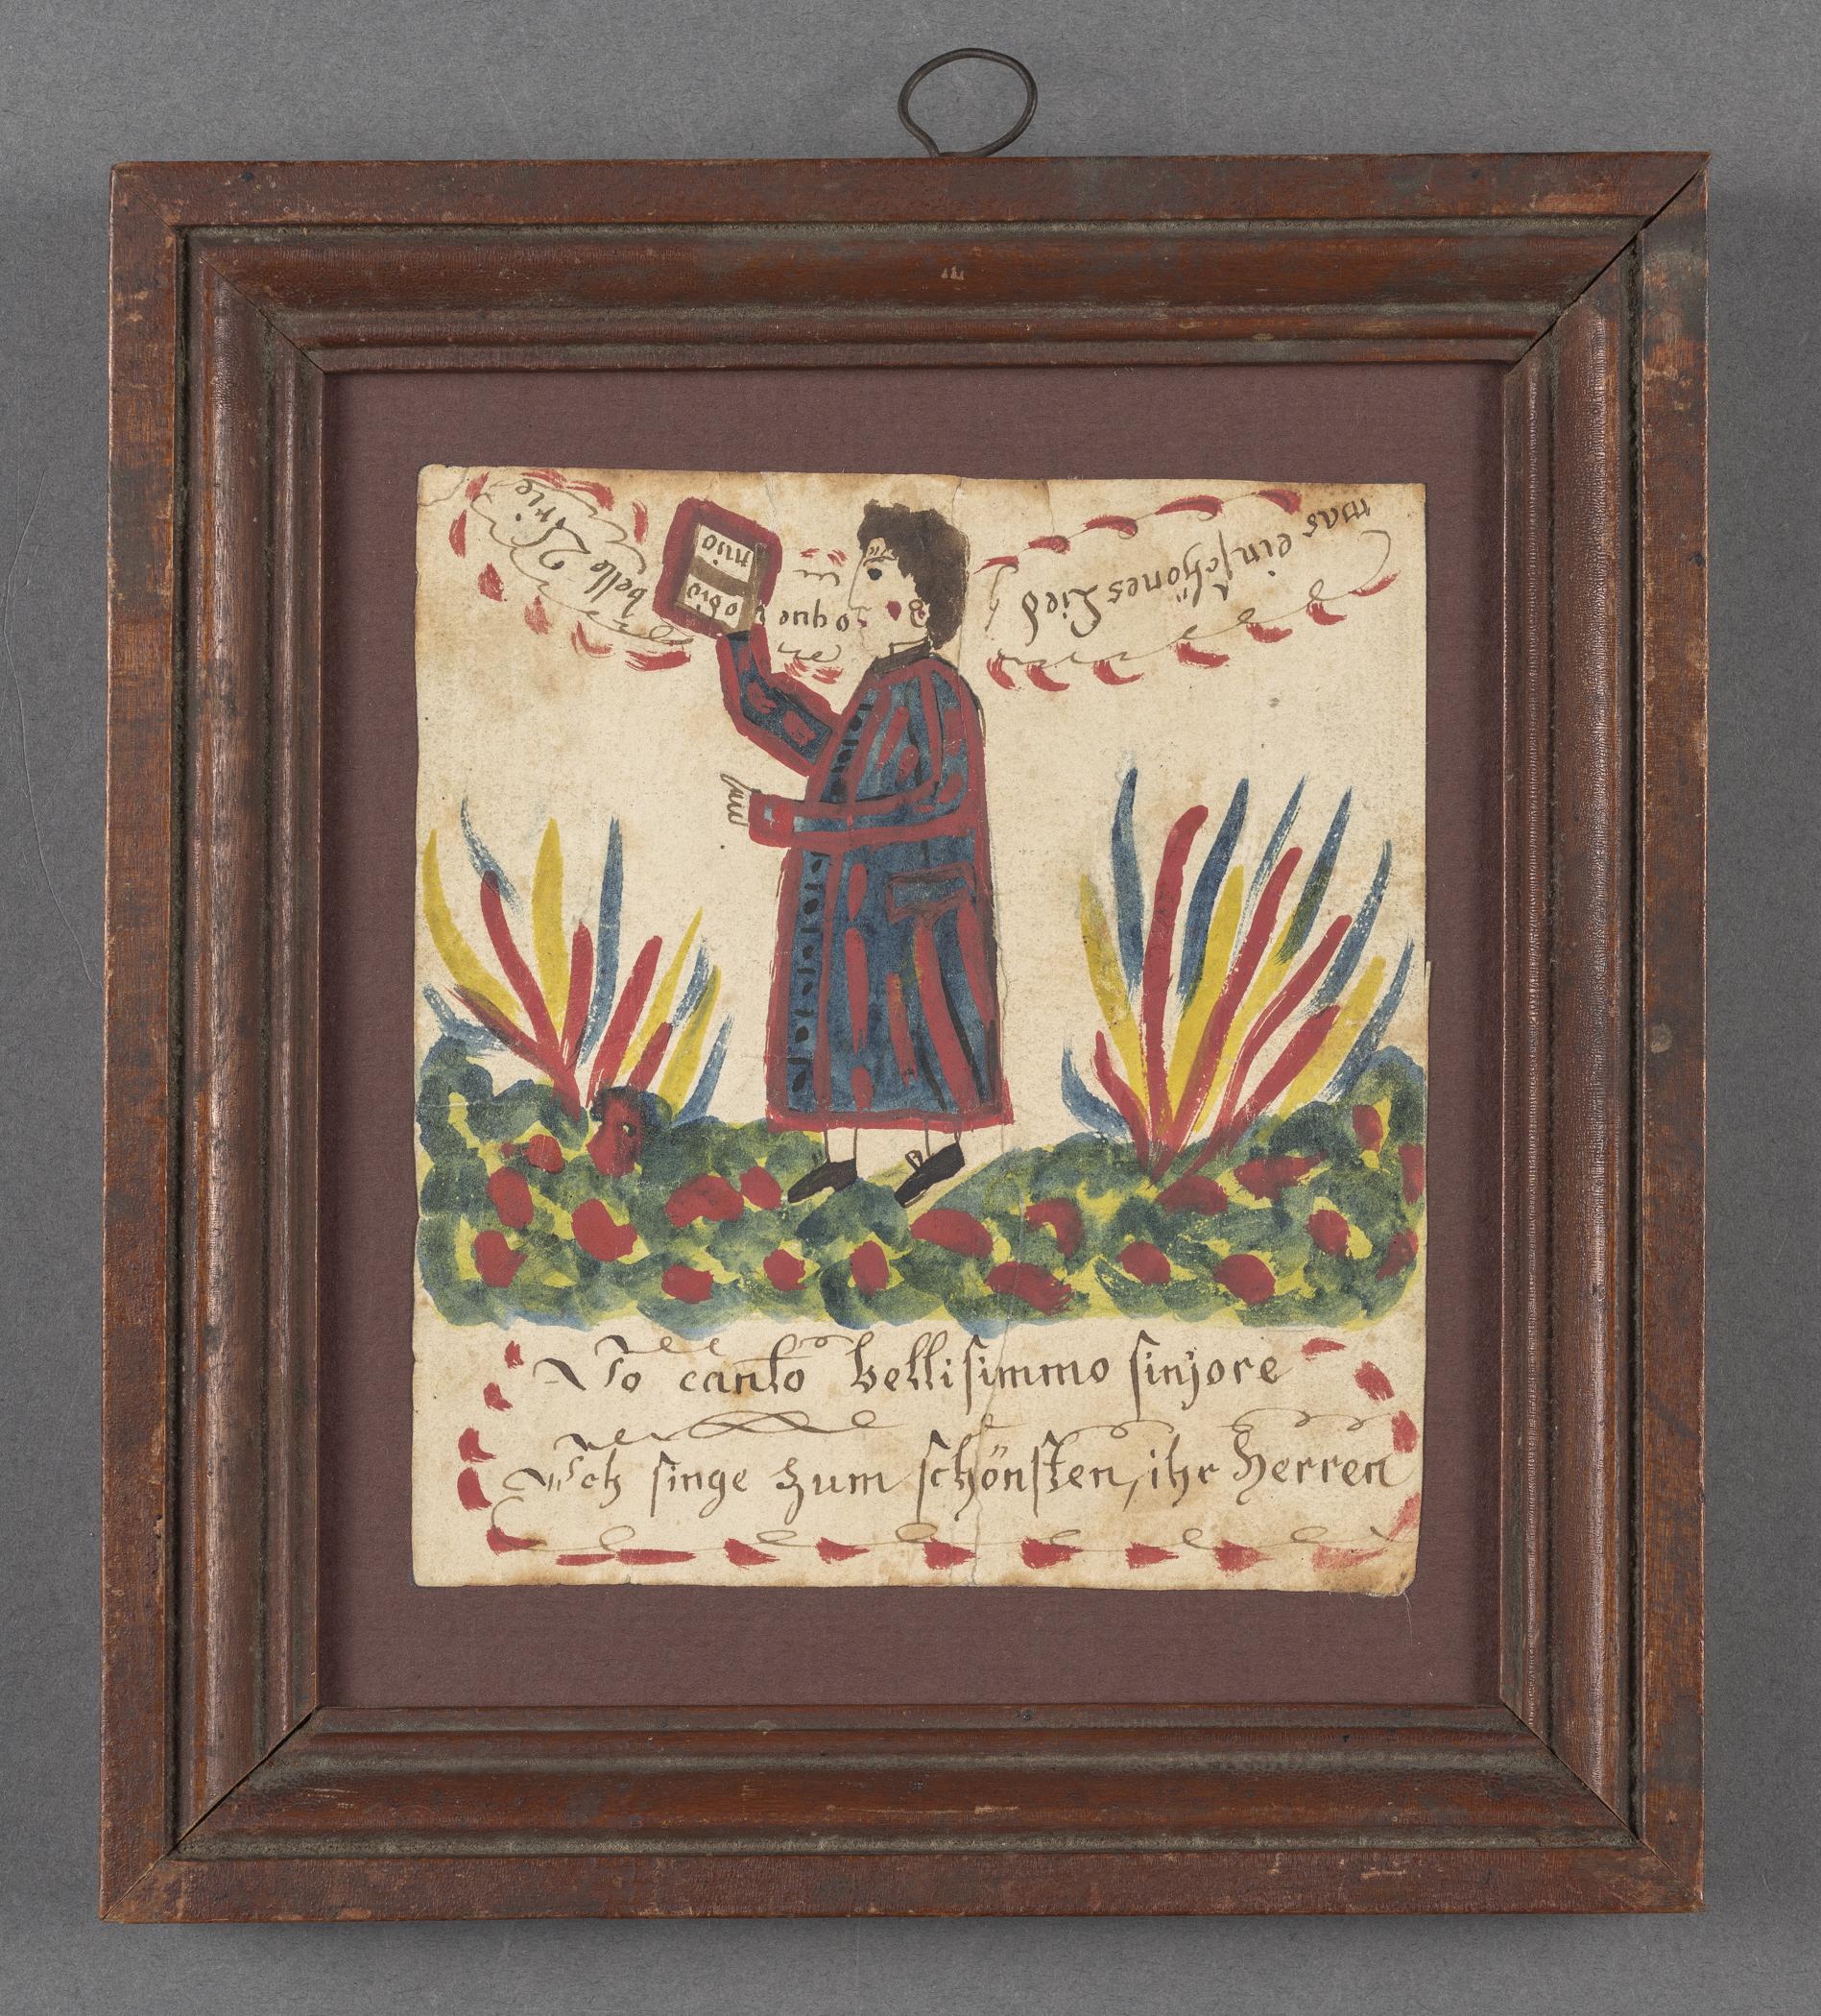 was ein schönes Lied
oque
belle Arie
dio
mio
Io canto bellisimmo sinjore
Ich singe zum schönsten, ihr Herren